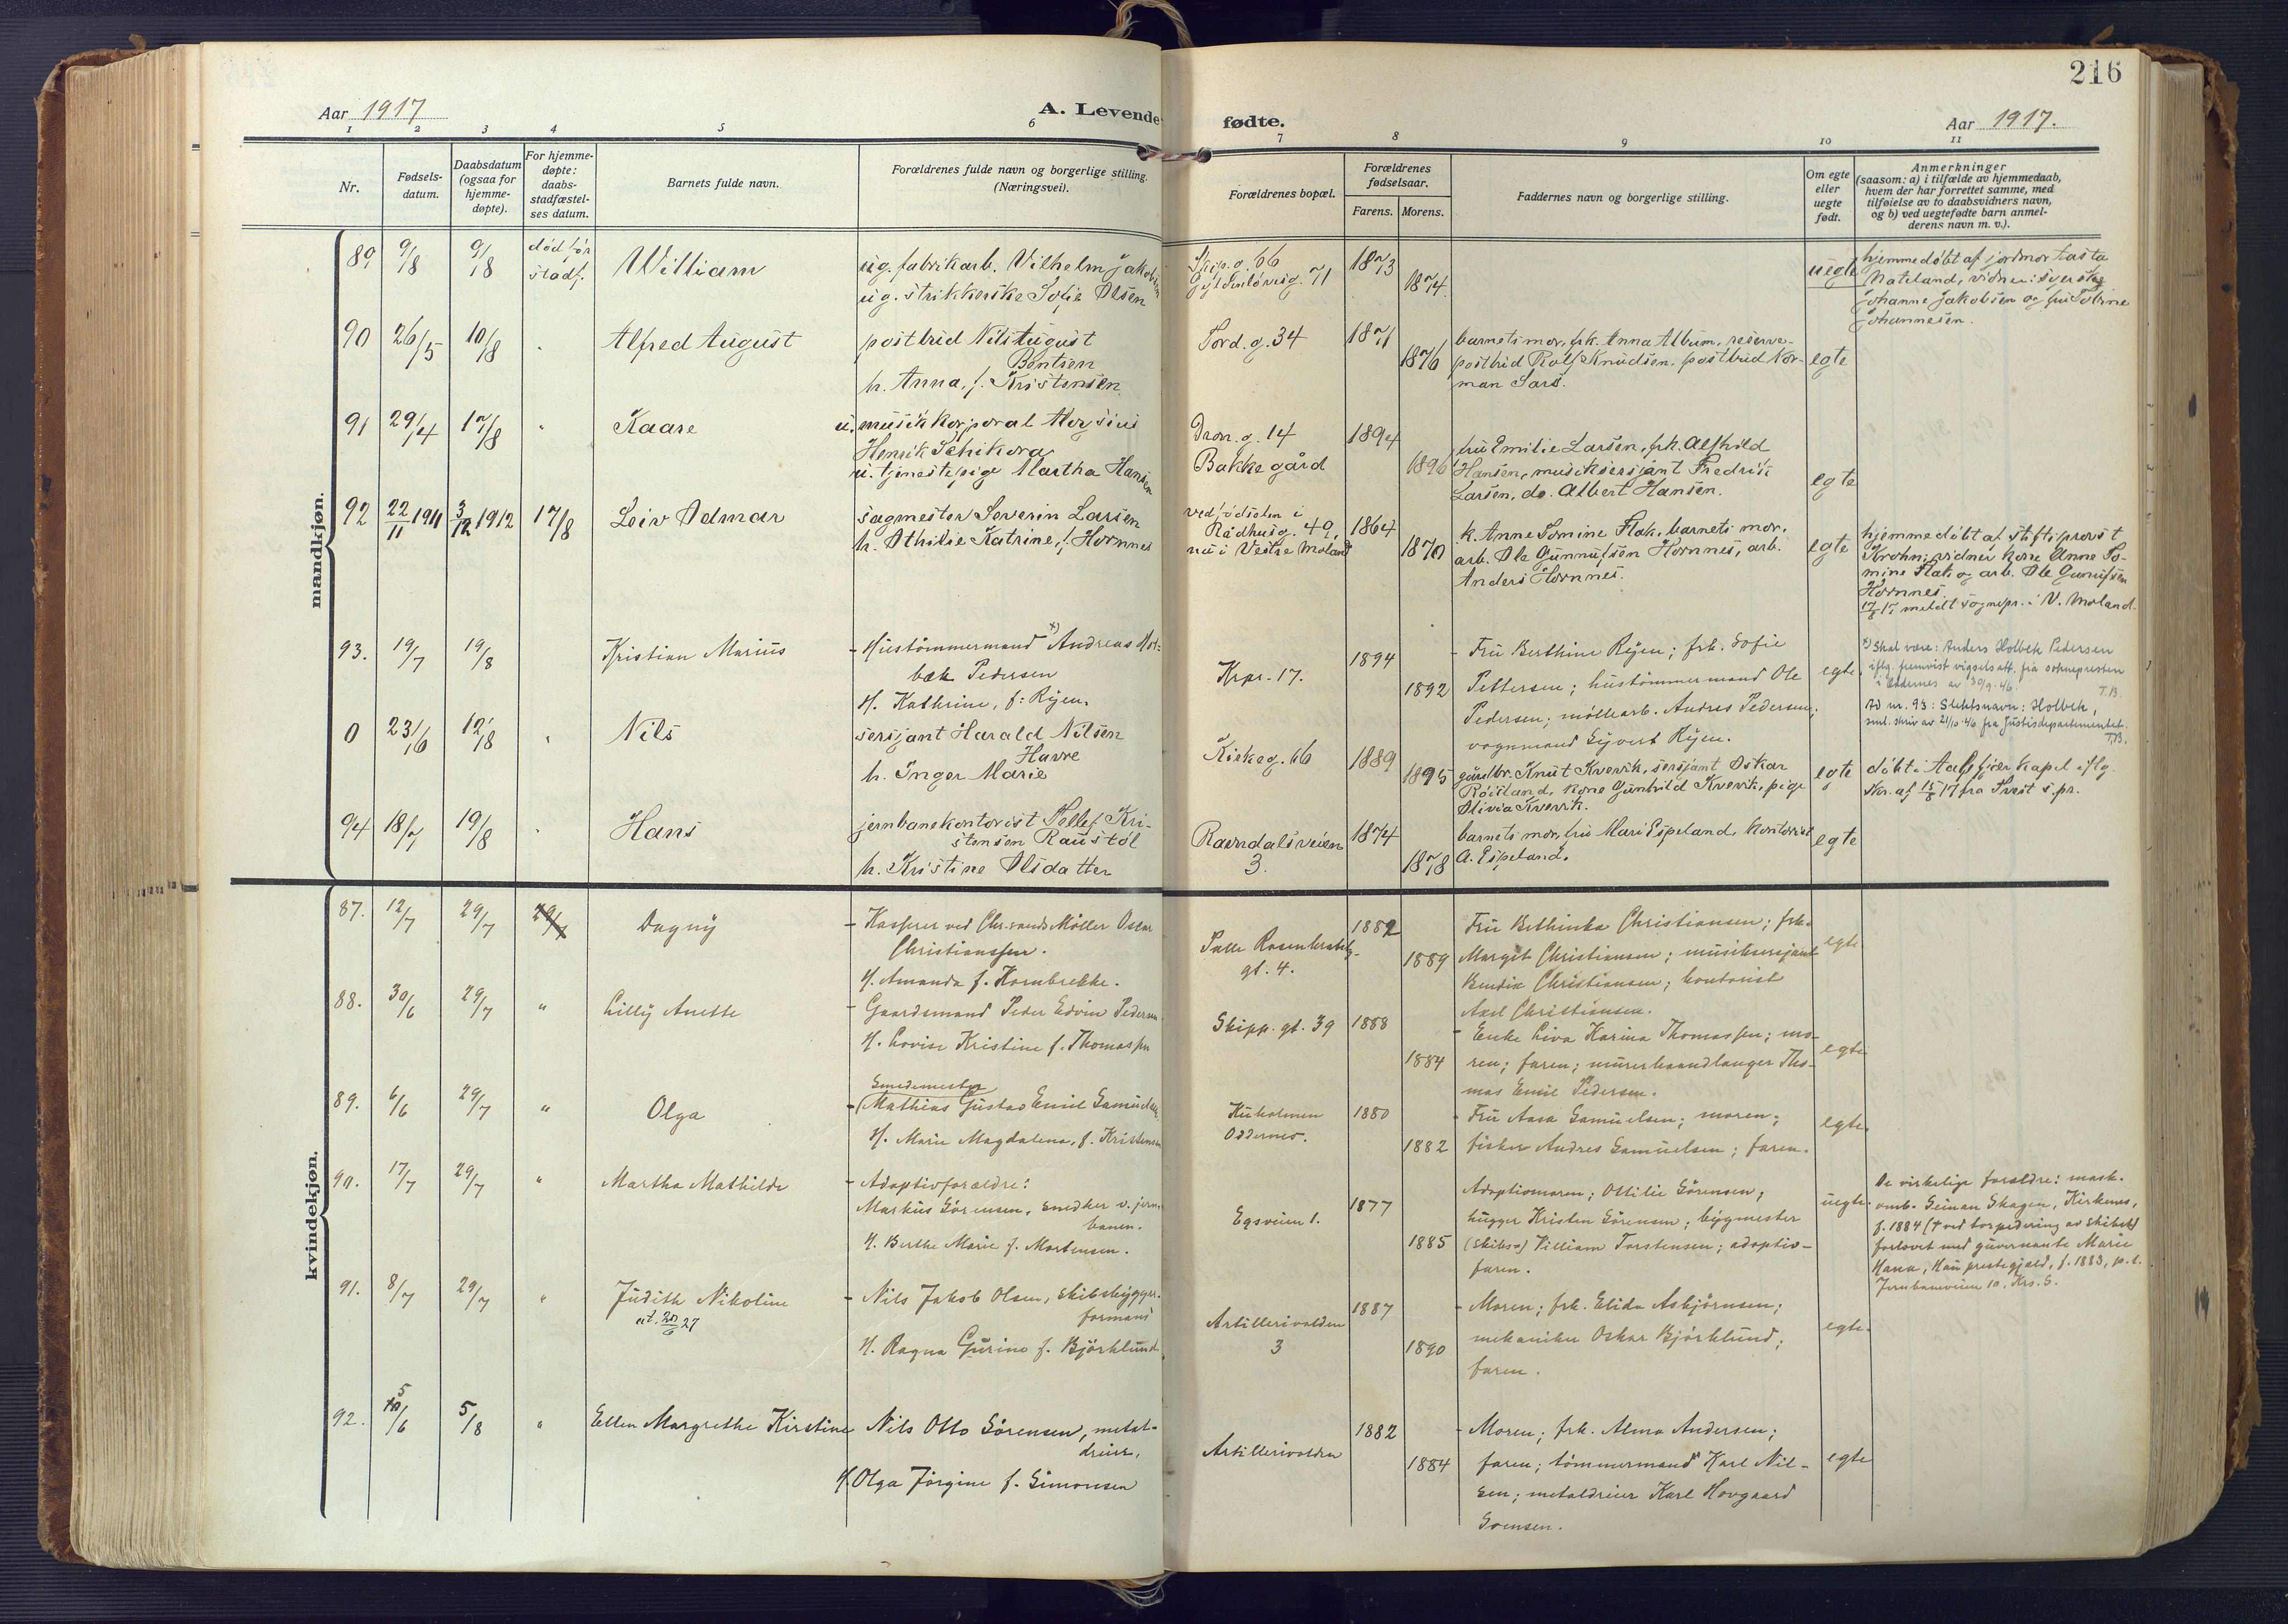 216
Aar 1917
A. Levende fødte.
Aar 1917.
1 2 3 4 5 6 7 8 9 10 11
Nr.
Fødsels-
datum.
Daabsdatum
(ogsaa for
hjemme-
døpte).
For hjemme-
døpte:
daabs-
stadfæstel-
ses datum.
Barnets fulde navn.
Forældrenes fulde navn og borgerlige stilling.
(Næringsvei).
Forældrenes bopæl.
Forældrenes
fødselsaar.
Farens. Morens.
Faddernes navn og borgerlige stilling.
Om egte
eller
uegte
født.
Anmerkninger
(saasom: a) i tilfælde av hjemmedaab,
hvem der har forrettet samme, med
tilføielse av to daabsvidners navn,
og b) ved uegtefødte barn anmel-
derens navn m. v.).
mandkjøn.
89 9/8 9/8 død før
stadf.
William
ug. fabrikarb. Vilhelm Jakobsen
ug. strikkerske Sofie Olsen
Skip.g. 66
Gyldenløvesg. 71
1873
1874
uegte
hjemmedøbt af jordmor Tasta
Nateland, vidner: syerske
Johanne Jakobsen og fru Tobine
Johannesen.
90 26/5 10/8 "
Alfred August
postbud Nils August
Bentsen
h. Anna, f. Kristensen
Tord.g. 34
1871
1876
barnets mor, frk. Anna Album, reserve-
postbud Rolf Knudsen, postbud Nor-
man Sars.
egte
91 29/4 17/8 "
Kaare
u. musikkorporal Aloysius
Henrik Schikora
u. tjenestepige Martha Hansen
Dron.g. 14
Bakkegård
1894
1896
fru Emilie Larsen, frk. Alfhild
Hansen, musiksersjant Fredrik
Larsen, do. Albert Hansen.
egte
92 22/11 1911 3/12 1912 17/8
Leiv Odmar
sagmester Severin Larsen
h. Othilie Katrine, f. Hornnes
ved fødselen i
Rådhusg. 49,
nu i Vestre Moland
1864
1870
k. Anne Tomine Flak, barnets mor,
arb. Ole Gunnufsen Hornnes, arb.
Anders Hornnes.
egte
hjemmedøbt af stiftsprovst
Krohn; vidner kone Anne To-
mine Flak og arb. Ole Gunnufsen
Hornnes.
17/8 17 meldt sognepr. i V. Moland.
93. 19/7 19/8
Kristian Marius
- Hustømmermand x) Andreas Hol-
bæk Pedersen
H. Kathrine, f: Ryen.
Krpr. 17.
1894
1892
- Fru Berthine Ryen; frk. Sofie
Pettersen; hustømmermand Ole
Pedersen; møllearb. Andres Pedersen;
vognmand Syvert Ryen.
egte
x) Skal være: Anders Holbek Pedersen
iflg. fremvist vigselsatt. fra soknepresten
i Oddernes av 30/9-46. T.B.
Ad nr. 93: Slektsnavn: Holbek,
sml. skriv av 21/10-46 fra Justisdepartementet.
T.B.
0 23/6 12/8 "
Nils
sersjant Harald Nilsen
Havre
h. Inger Marie
Kirkeg. 66
1889
1895
gårdbr. Knut Kvevik, sersjant Oskar
Røisland, kone Gunhild Kvevik, pige
Olivia Kvevik.
egte
døbt i Aalefjær kapel iflg.
skr. af 15/8 17 fra Tveit s.pr.
94 18/7 19/8 "
Hans
jernbanekontorist Tellef Kri-
stensen Raustøl
h. Kristine Olsdatter
Ravndalsveien
3.
1874
1878
barnets mor, fru Mari Espeland, kontorist
A. Espeland.
egte
kvindekjøn.
87. 12/7 29/7 29/7
Dagny
- Kasserer ved Chr.sands Møller Oscar
Christianssen.
H. Amanda f. Kornbrekke.
Palle Rosenkrantz
gt. 4.
1882
1889
Fru Bethinka Christiansen; frk.
Margit Christiansen; musiksersjant
Bendix Christiansen; kontorist
Axel Christiansen.
egte
88. 30/6 29/7 "
Lilly Anette
- Gaardsmand Peder Edvin Pedersen
H. Lovise Kristine f. Thomassen
Skipp. gt. 39
1888
1884
- Enke Liva Karina Thomassen; mo-
ren; faren; murerhaandlanger Tho-
mas Emil Pedersen.
egte
89. 6/6 29/7 "
Olga
Smedemester
- Mathias Gustav Emil Samuelsen
H. Marie Magdalena, f. Kristensen
Kuholmen
Oddernes.
1880
1882
- Fru Aasa Samuelsen; moren;
fisker Andres Samuelsen; faren.
egte.
90. 17/7 29/7 "
Martha Mathilde
- Adoptivforældre:
Markus Sørensen, snedker v. jern-
banen.
H. Berthe Marie f. Mortensen.
Egsveien 1.
1877
1885
Adoptivmoren; Ottilie Sørensen;
hugger Kristen Sørensen; bygmester
(skibs-) Villiam Torstensen; adoptiv-
faren.
uegte.
De virkelige forældre: mask.
omb. Seinan Skagen, Kirkenes,
f. 1884 († ved torpedering av skibet)
forlovet med guvernante Marie
Hana, Hau prestegjæld, f. 1883, p.t.
Jernbaneveien 10, Krs.S.
91. 8/7 29/7 "
Judith Nikoline
at. 20/6 27
- Nils Jakob Olsen, skibsbygger-
formand
H. Ragna Gurine f. Bjørklund
Artillerivolden
3
1887
1890
- Moren; frk. Elida Asbjørnsen;
mekaniker Oskar Bjørklund;
faren.
egte.
92. 5/6 5/8 "
Ellen Margrethe Kirstine
Nils Otto Sørensen, metal-
dreier,
H. Olga Jørgine f. Simonsen
Artillerivolden
1882
1884
- Moren; frk. Alma Andersen;
faren; tømmermand Karl Nil-
sen; metaldreier Karl Hovgaard
Sørensen.
egte